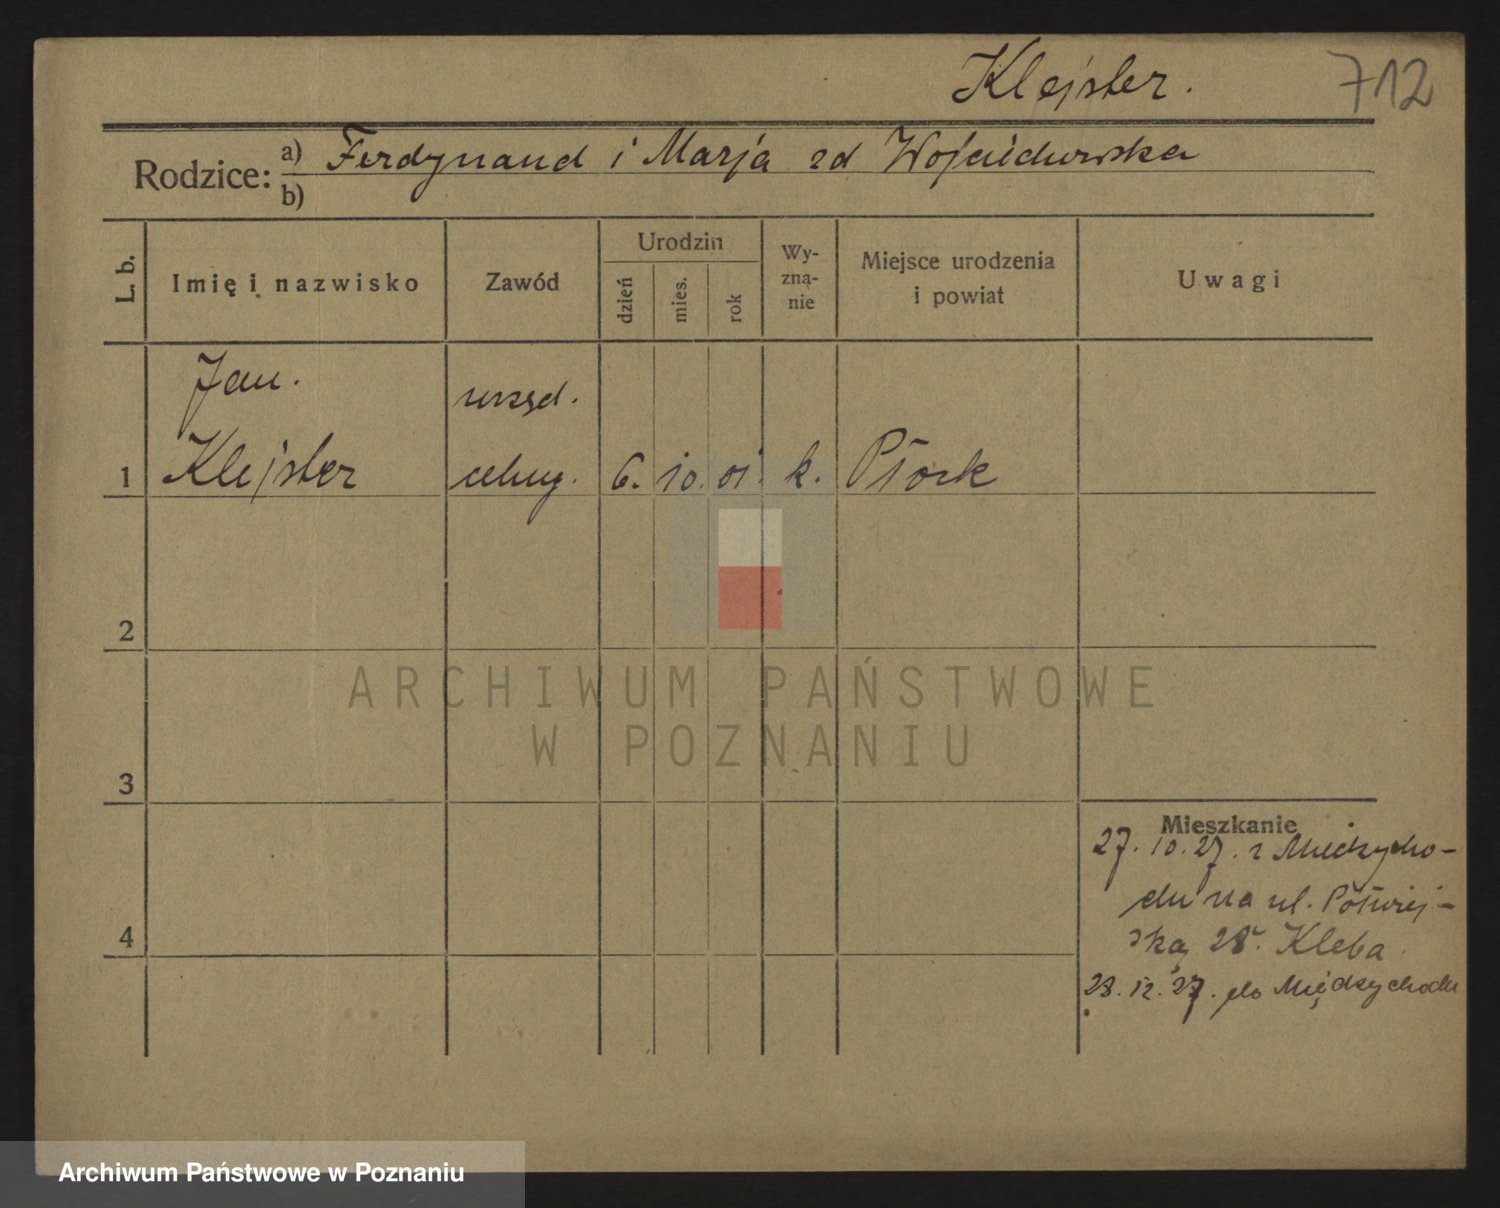 Klejster. 712
Rodzice: a) Ferdynand i Marja zd Wojciechowska
b)
L. b. Imię i nazwisko Zawód Urodzin dzień mies. rok Wy-zna-nie Miejsce urodzenia i powiat Uwagi
Jan. urzęd.
1 Klejster celny. 6. 10. 01. k. Płock
2
ARCHIWUM PAŃSTWOWE
W POZNANIU
3
Mieszkanie
27. 10. 27. z Międzycho-
du na ul. Półwiej-
ską 28. Kleba.
4
28. 12. 27. do Międzychodu
Archiwum Państwowe w Poznaniu